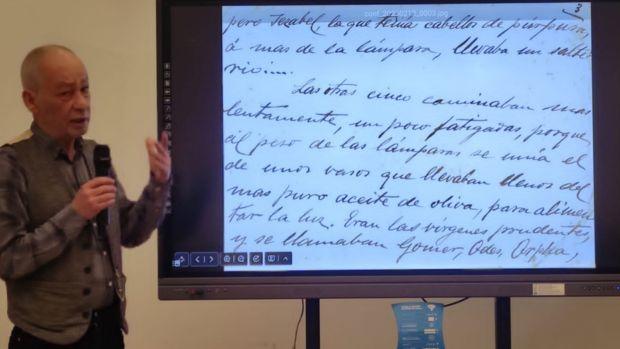 conf_20230213_0003.jpg
3
pero Jezabel, la que tenía cabellos de púrpura,
á mas de la lámpara, llevaba un salte
rio....
Las otras cinco caminaban mas
lentamente, un poco fatigadas, porque
al peso de las lámparas se unía el
de unos vasos que llevaban llenos del
mas puro aceite de oliva, para alimen
tar la luz. Eran las vírgenes prudentes,
y se llamaban Gomer, Odes, Orpha,